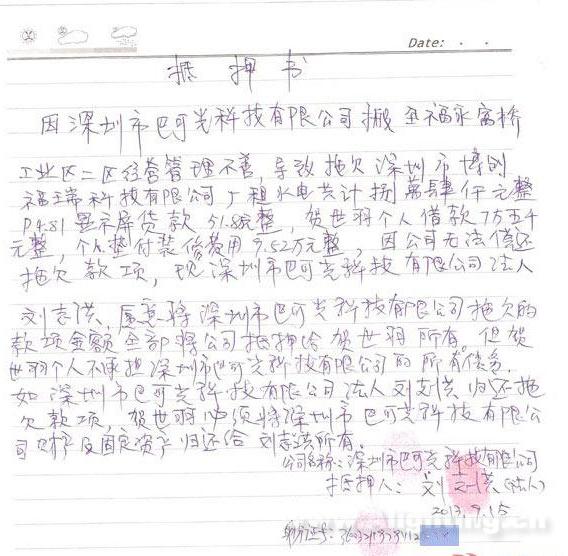 Date: . .
抵押书
因深圳市巴可光科技有限公司搬至福永富桥
工业区二区经营管理不善,导致拖欠深圳市博则
福瑞科技有限公司厂租水电共计捌萬肆仟元整
P4.81显示屏货款51.8万元整,贺世羽个人借款7万五千
元整,个人垫付装修费用9.52万元整,因公司无法偿还
拖欠款项,现深圳市巴可光科技有限公司法人
刘志洪,愿意将深圳市巴可光科技有限公司拖欠的
款项金额全部将公司抵押给贺世羽所有,但贺
世羽个人不承担深圳市巴可光科技有限公司的所有债务.
如深圳市巴可光科技有限公司法人刘志洪归还拖
欠款项,贺世羽必须将深圳市巴可光科技有限公
司财产及固定资产归还给刘志洪所有.
公司名称:深圳市巴可光科技有限公司
抵押人:刘志洪(法人)
2013.9.15
身份证号: